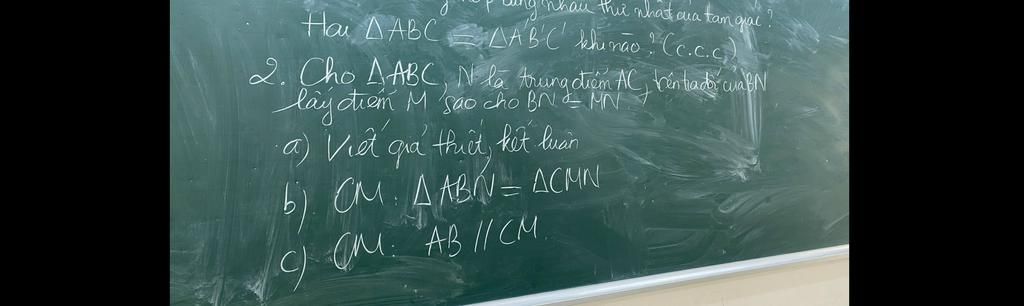 cũng nhau thứ nhất của tam giác?
Hai ΔABC = ΔA'B'C' khi nào? (c.c.c)
2. Cho ΔABC, N là trung điểm AC, trên tia đối của BN
lấy điểm M sao cho BN = MN
a) Viết giả thiết, kết luận
b). CM: ΔABN = ΔCMN
c) CM: AB // CM.